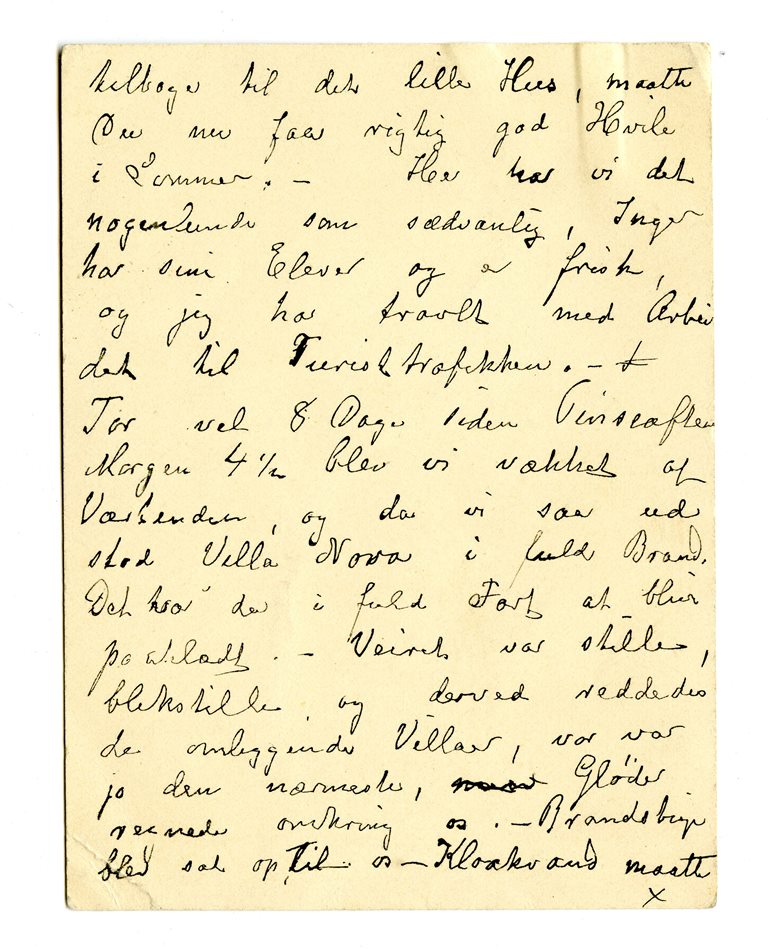 tilbage til det lille Hus, maatte
Du nu faa rigtig god Hvile
i Sommer. – Her har vi det
nogenlunde som sædvanlig, Inger
har sine Elever og er frisk,
og jeg har travlt med Arbei
det til Turisttrafikken. –
For vel 8 Dage siden Pinseaften
Morgen 4½ blev vi vækket af
Værtinden, og da vi saa ud
stod Villa Nova i fuld Brand.
Det var da i fuld Fart at blive
paaklædt. – Veiret var stille,
blikstille og derved reddedes
de omliggende Villaer, vor var
jo den nærmeste, Gløder
regnede omkring os. – Brandstige
blev sat op til os – Kloakvand maatte
x